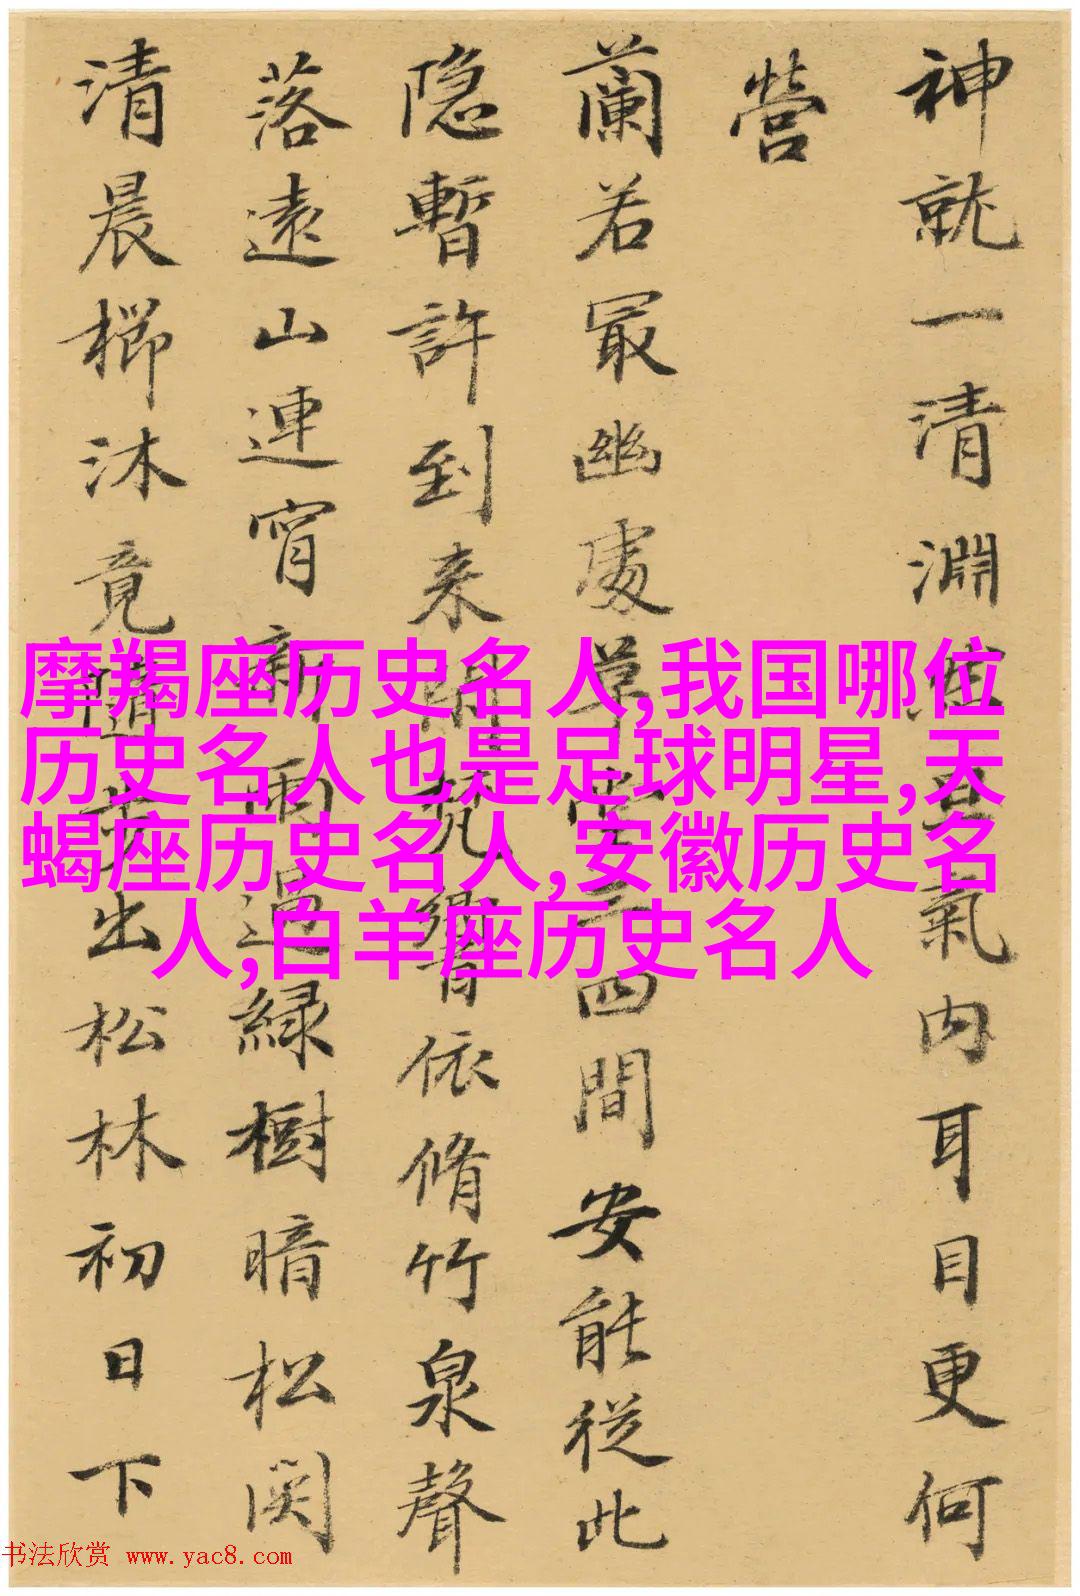 神就一清淵虛無氣內耳目更何
營
蘭若冣幽處草堂三四間安能從此
隐暫許到来閑梵響依脩竹泉聲
落遠山連宵新雨過緑樹暗松関
清晨櫛沐竟隨步出松林初日下
摩羯座历史名人,我国哪位
历史名人也是足球明星,天
蝎座历史名人,安徽历史名
人,白羊座历史名人
书法欣赏 www.yac8.com